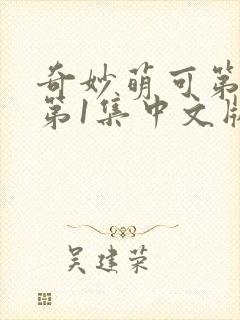 奇妙萌可第
第1集中文版
吴建荣